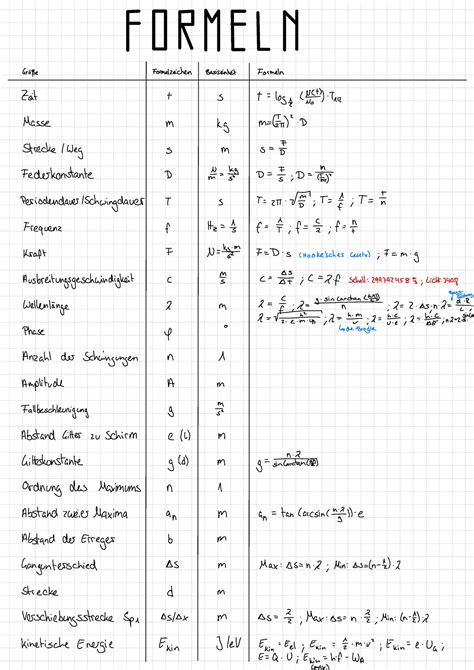 FORMELN
Größe Formelzeichen Basiseinheit Formeln
Zeit t s t = log½ (N(t)/N₀) · T
Masse m kg m = (T/2π)² · D
Strecke / Weg s m s = F/D
Federkonstante D N/m = kg/s² D = F/s ; D =
Periodendauer/Schwingdauer T s T = 2π · √(m/D) ; T = 1/f ; T = t/n
Frequenz f Hz = 1/s f = 1/T ; f = c/λ ; f = n/t
Kraft F N = kg·m/s² F = D · s (Hooke'sches Gesetz) ; F = m · g
Ausbreitungsgeschwindigkeit c m/s c = Δs/Δt ; c = λ·f Schall: 299792458 m/s ; Licht: 340
Wellenlänge λ m λ = c/f ; λ =
Phase φ °
Anzahl der Schwingungen n 1
Amplitude A m
Fallbeschleunigung g m/s²
Abstand Gitter zu Schirm e (l) m
Gitterkonstante g (d) m g = n·λ
Ordnung des Maximums n 1
Abstand zweier Maxima aₙ m aₙ = tan (arcsin(n·λ/g)) · e
Abstand der Erreger b m
Gangunterschied Δs m Max: Δs = n·λ ; Min: Δs = (n-½)·λ
Strecke d m
Verschiebungsstrecke Sp₁ Δs/Δx m Δs = λ/2 ; Max: Δs = n·λ/2 ; Min: (n-½)·λ/2
kinetische Energie Eₖᵢₙ J/eV Eₖᵢₙ = Eₑₗ ; Eₖᵢₙ = ½ · m · v² ; Eₖᵢₙ = e · U_A ;
E = Q · U ; Eₖᵢₙ = h·f - W_A